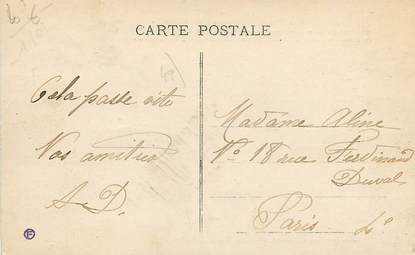 CARTE POSTALE
Cela passe vite
Nos amitiés
A. D.
Madame Aline
No 18 rue Ferdinand
Duval
Paris 4e